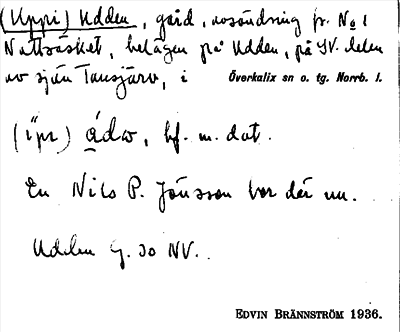 (Uppi) Udden, gård, avsöndring fr. No 1
Nattvasket, belägen på Udden, på SV. delen
av sjön Tansjärv, i Överkalix sn o. tg. Norrb. l.
(ipi) ádw, bf. m. dat.
En Nils P. Jönsson bor där nu.
Udden g. 30 NV.
EDVIN BRÄNNSTRÖM 1936.